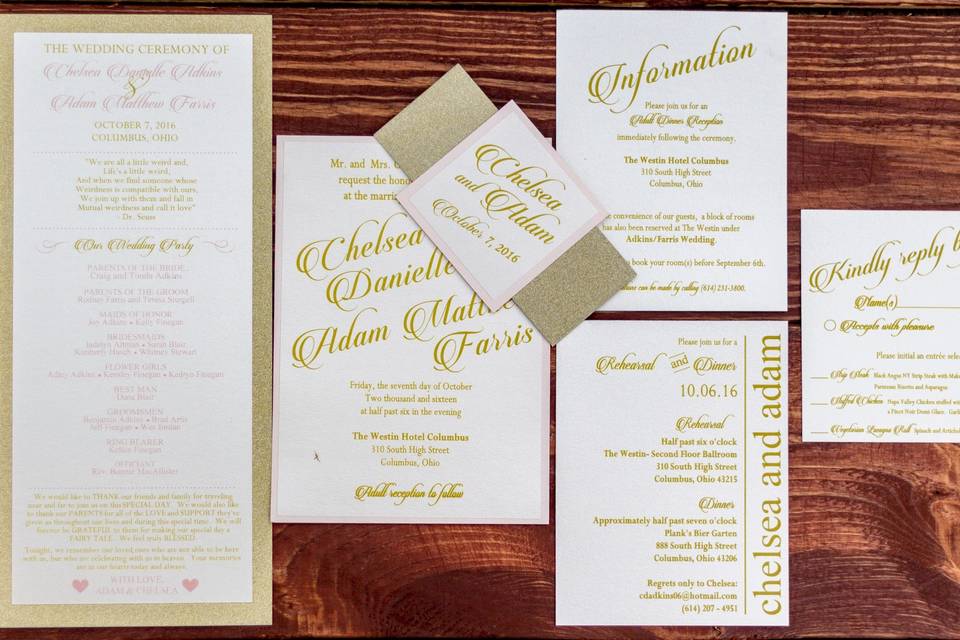 THE WEDDING CEREMONY OF
Chelsea Danielle Adkins
&
Adam Matthew Farris
OCTOBER 7, 2016
COLUMBUS, OHIO
"We are all a little weird and,
Life's a little weird,
And when we find someone whose
Weirdness is compatible with ours,
We join up with them and fall in
Mutual weirdness and call it love"
- Dr. Seuss
Our Wedding Party
PARENTS OF THE BRIDE
Craig and Tondi Adkins
PARENTS OF THE GROOM
Rodney Farris and Teresa Sturgell
MAIDS OF HONOR
Joy Adkins • Kelly Finegan
BRIDESMAIDS
Altman • Sarah Bush
Kimberly Hatch • Whitney Stewart
FLOWER GIRLS
Adkins • Kennley Finegan • Finegan
BEST MAN
Dana Blair
GROOMSMEN
Benjamin Adkins • Brad Artis
Jeff Finegan • Wes Jordan
RING BEARER
Finegan
OFFICIANT
Rev. Bonnie MacAllister
We would like to THANK our friends and family for traveling
near and far to join us on this SPECIAL DAY. We would also like
to thank our PARENTS for all of the LOVE and SUPPORT they've
given us throughout our lives and during this special time. We will
forever be GRATEFUL to them for making our special day a
FAIRY TALE. We feel truly BLESSED.
Tonight, we remember our loved ones who are not able to be here
with us, but who are celebrating with us in heaven. Your memories
are in our hearts today and always.
WITH LOVE,
ADAM & CHELSEA
Mr. and Mrs.
request the hono
at the marri
Chelsea
Danielle
Adam Matt
Farris
Friday, the seventh day of October
Two thousand and sixteen
at half past six in the evening
The Westin Hotel Columbus
310 South High Street
Columbus, Ohio
Adult reception to follow
Chelsea
and Adam
October 7, 2016
Information
Please join us for an
Adult Dinner Reception
immediately following the ceremony.
The Westin Hotel Columbus
310 South High Street
Columbus, Ohio
e convenience of our guests, a block of rooms
has also been reserved at The Westin under
Adkins/Farris Wedding.
book your room(s) before September 6th.
can be made by calling (614) 231-3800.
Please join us for a
Rehearsal and Dinner
10.06.16
Rehearsal
Half past six o'clock
The Westin- Second Floor Ballroom
310 South High Street
Columbus, Ohio 43215
Dinner
Approximately half past seven o'clock
Plank's Bier Garten
888 South High Street
Columbus, Ohio 43206
Regrets only to Chelsea:
cdadkins06@hotmail.com
(614) 207 - 4951
chelsea and adam
Kindly reply b
Name(s)
Accepts with pleasure
Please initial an entrée selec
Strip Steak Black Angus NY Strip Steak with Make
Parmesan Risotto and Asparagus
Stuffed Chicken Napa Valley Chicken stuffed with
a Pinot Noir Demi Glace. Garli
Vegetarian Lasagna Roll Spinach and Artichok